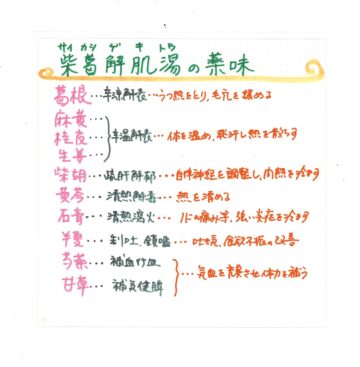 サイカツ ゲ キ トウ
柴葛解肌湯の薬味
葛根…辛涼解表…うつ熱をとり、毛穴を緩める
麻黄
桂皮…辛温解表…体を温め、発汗し熱を散らす
生姜
柴胡…疎肝解郁…自律神経を調整し、内熱を冷ます
黄芩…清熱解毒…熱を清める
石膏…清熱瀉火…の痛み等、強い炎症を冷ます
半夏…制吐、鎮嘔…吐き気、食欲不振の改善
芍薬…補血
甘草…補気健脾
…気血を充実させ体力を補う